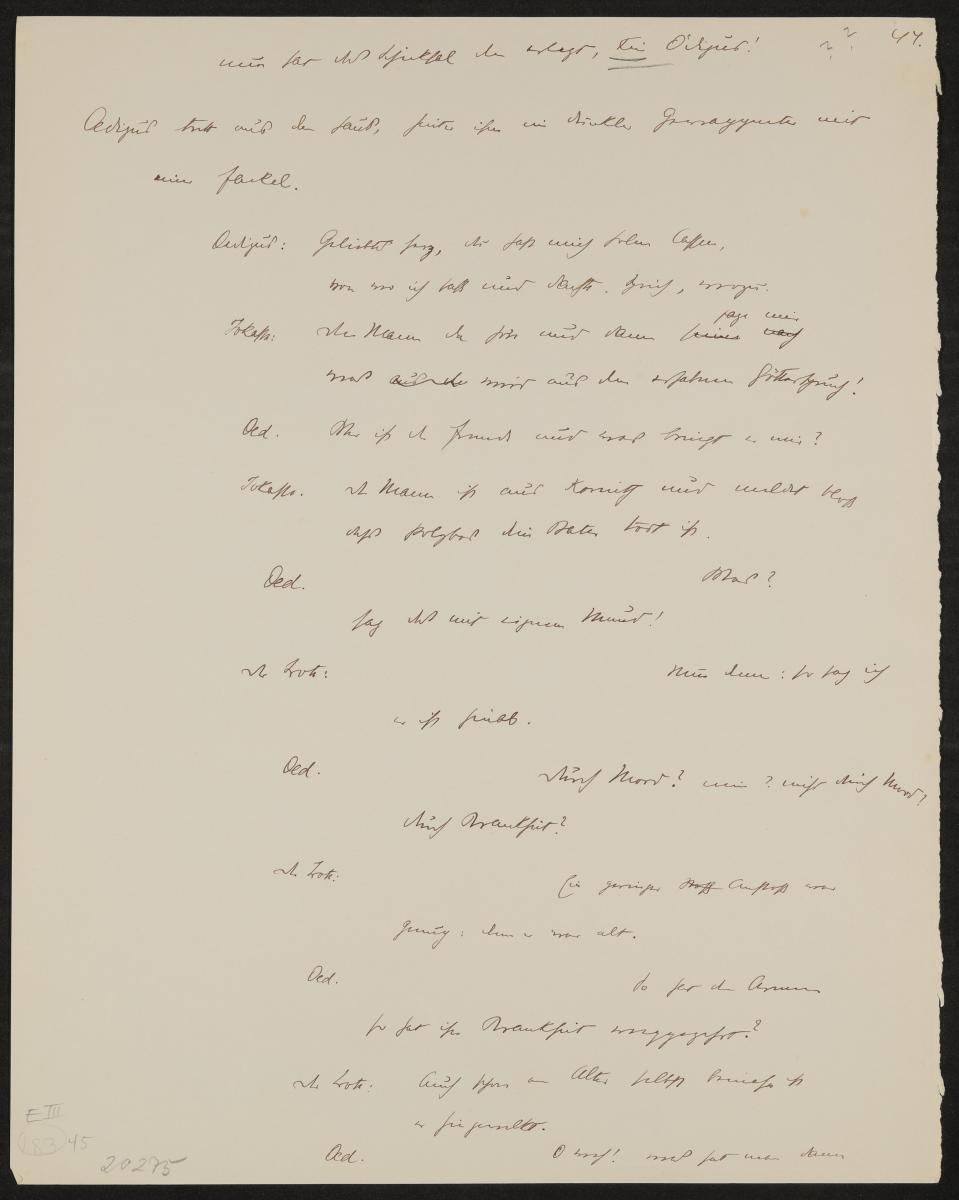 44.
nun hat das Schicksal den erlegt, kein Ödipus!
??
Oedipus tritt aus dem Haus, hinter ihm ein dunkler Gewappneter mit
einer Fackel.
Oedipus: Geliebtes Herz, du hast mich holen lassen,
von wo ich saß und dachte. Sprich, wozu.
Jokaste: den Mann da hör und dann sage mir
was wir aus den erfahrnen Göttersprüch!
Oed. Wer ist der Fremde und was bringt er mir?
Jokaste. der Mann ist aus Korinth und meldet bloß
daß Polybos dein Vater todt ist.
Oed. Was?
sag das mit eignem Mund!
der Bote: Nun denn: so sag ich
er ist hinab.
Oed. durch Mord? nein? nicht durch Mord?
durch Krankheit?
der Bote: Ein geringer Anstoß war
genug: denn er war alt.
Oed. So hat den Armen
so hat ihn Krankheit weggezehrt?
der Bote: Auch schon am Alter selbst beinahe ist
er hingewelkt.
Oed. O weh! was hat man dann
E III
183 45
20275